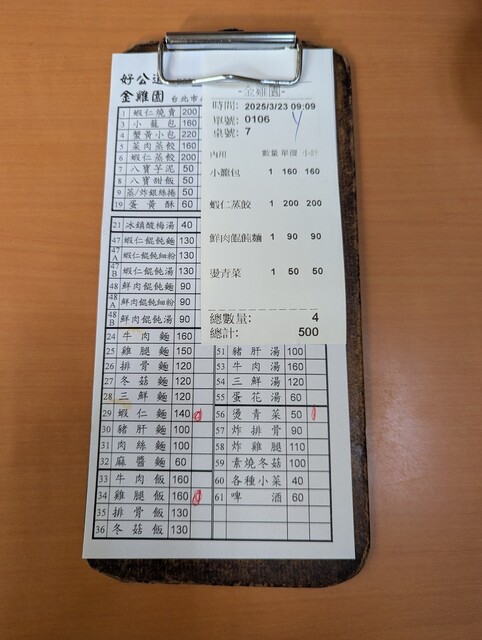 好公道
金雞園 台北市
1 蝦仁燒賣 200
3 小籠包 160
4 蟹黃小包 220
5 菜肉蒸餃 160
6 蝦仁蒸餃 200
7 八寶芋泥 50
8 八寶甜飯 50
9 蒸/炸銀絲捲 50
19 蛋黃酥 60
21 冰鎮酸梅湯 40
47 蝦仁餛飩麵 130
47A 蝦仁餛飩細粉 130
47B 蝦仁餛飩湯 130
48 鮮肉餛飩麵 90
48A 鮮肉餛飩細粉 90
48B 鮮肉餛飩湯 90
24 牛肉麵 160
25 雞腿麵 150
26 排骨麵 120
27 冬菇麵 120
28 三鮮麵 120
29 蝦仁麵 140
30 豬肝麵 100
31 肉絲麵 100
32 麻醬麵 60
33 牛肉飯 160
34 雞腿飯 160
35 排骨飯 130
36 冬菇飯 130
51 豬肝湯 100
53 牛肉湯 160
54 三鮮湯 120
55 蛋花湯 60
56 燙青菜 50
57 炸排骨 90
58 炸雞腿 110
59 素燒冬菇 100
60 各種小菜 40
61 啤酒 60
-金雞園-
時間: 2025/3/23 09:09
單號: 0106
桌號: 7
內用 數量 單價 小計
小籠包 1 160 160
蝦仁蒸餃 1 200 200
鮮肉餛飩麵 1 90 90
燙青菜 1 50 50
總數量: 4
總計: 500